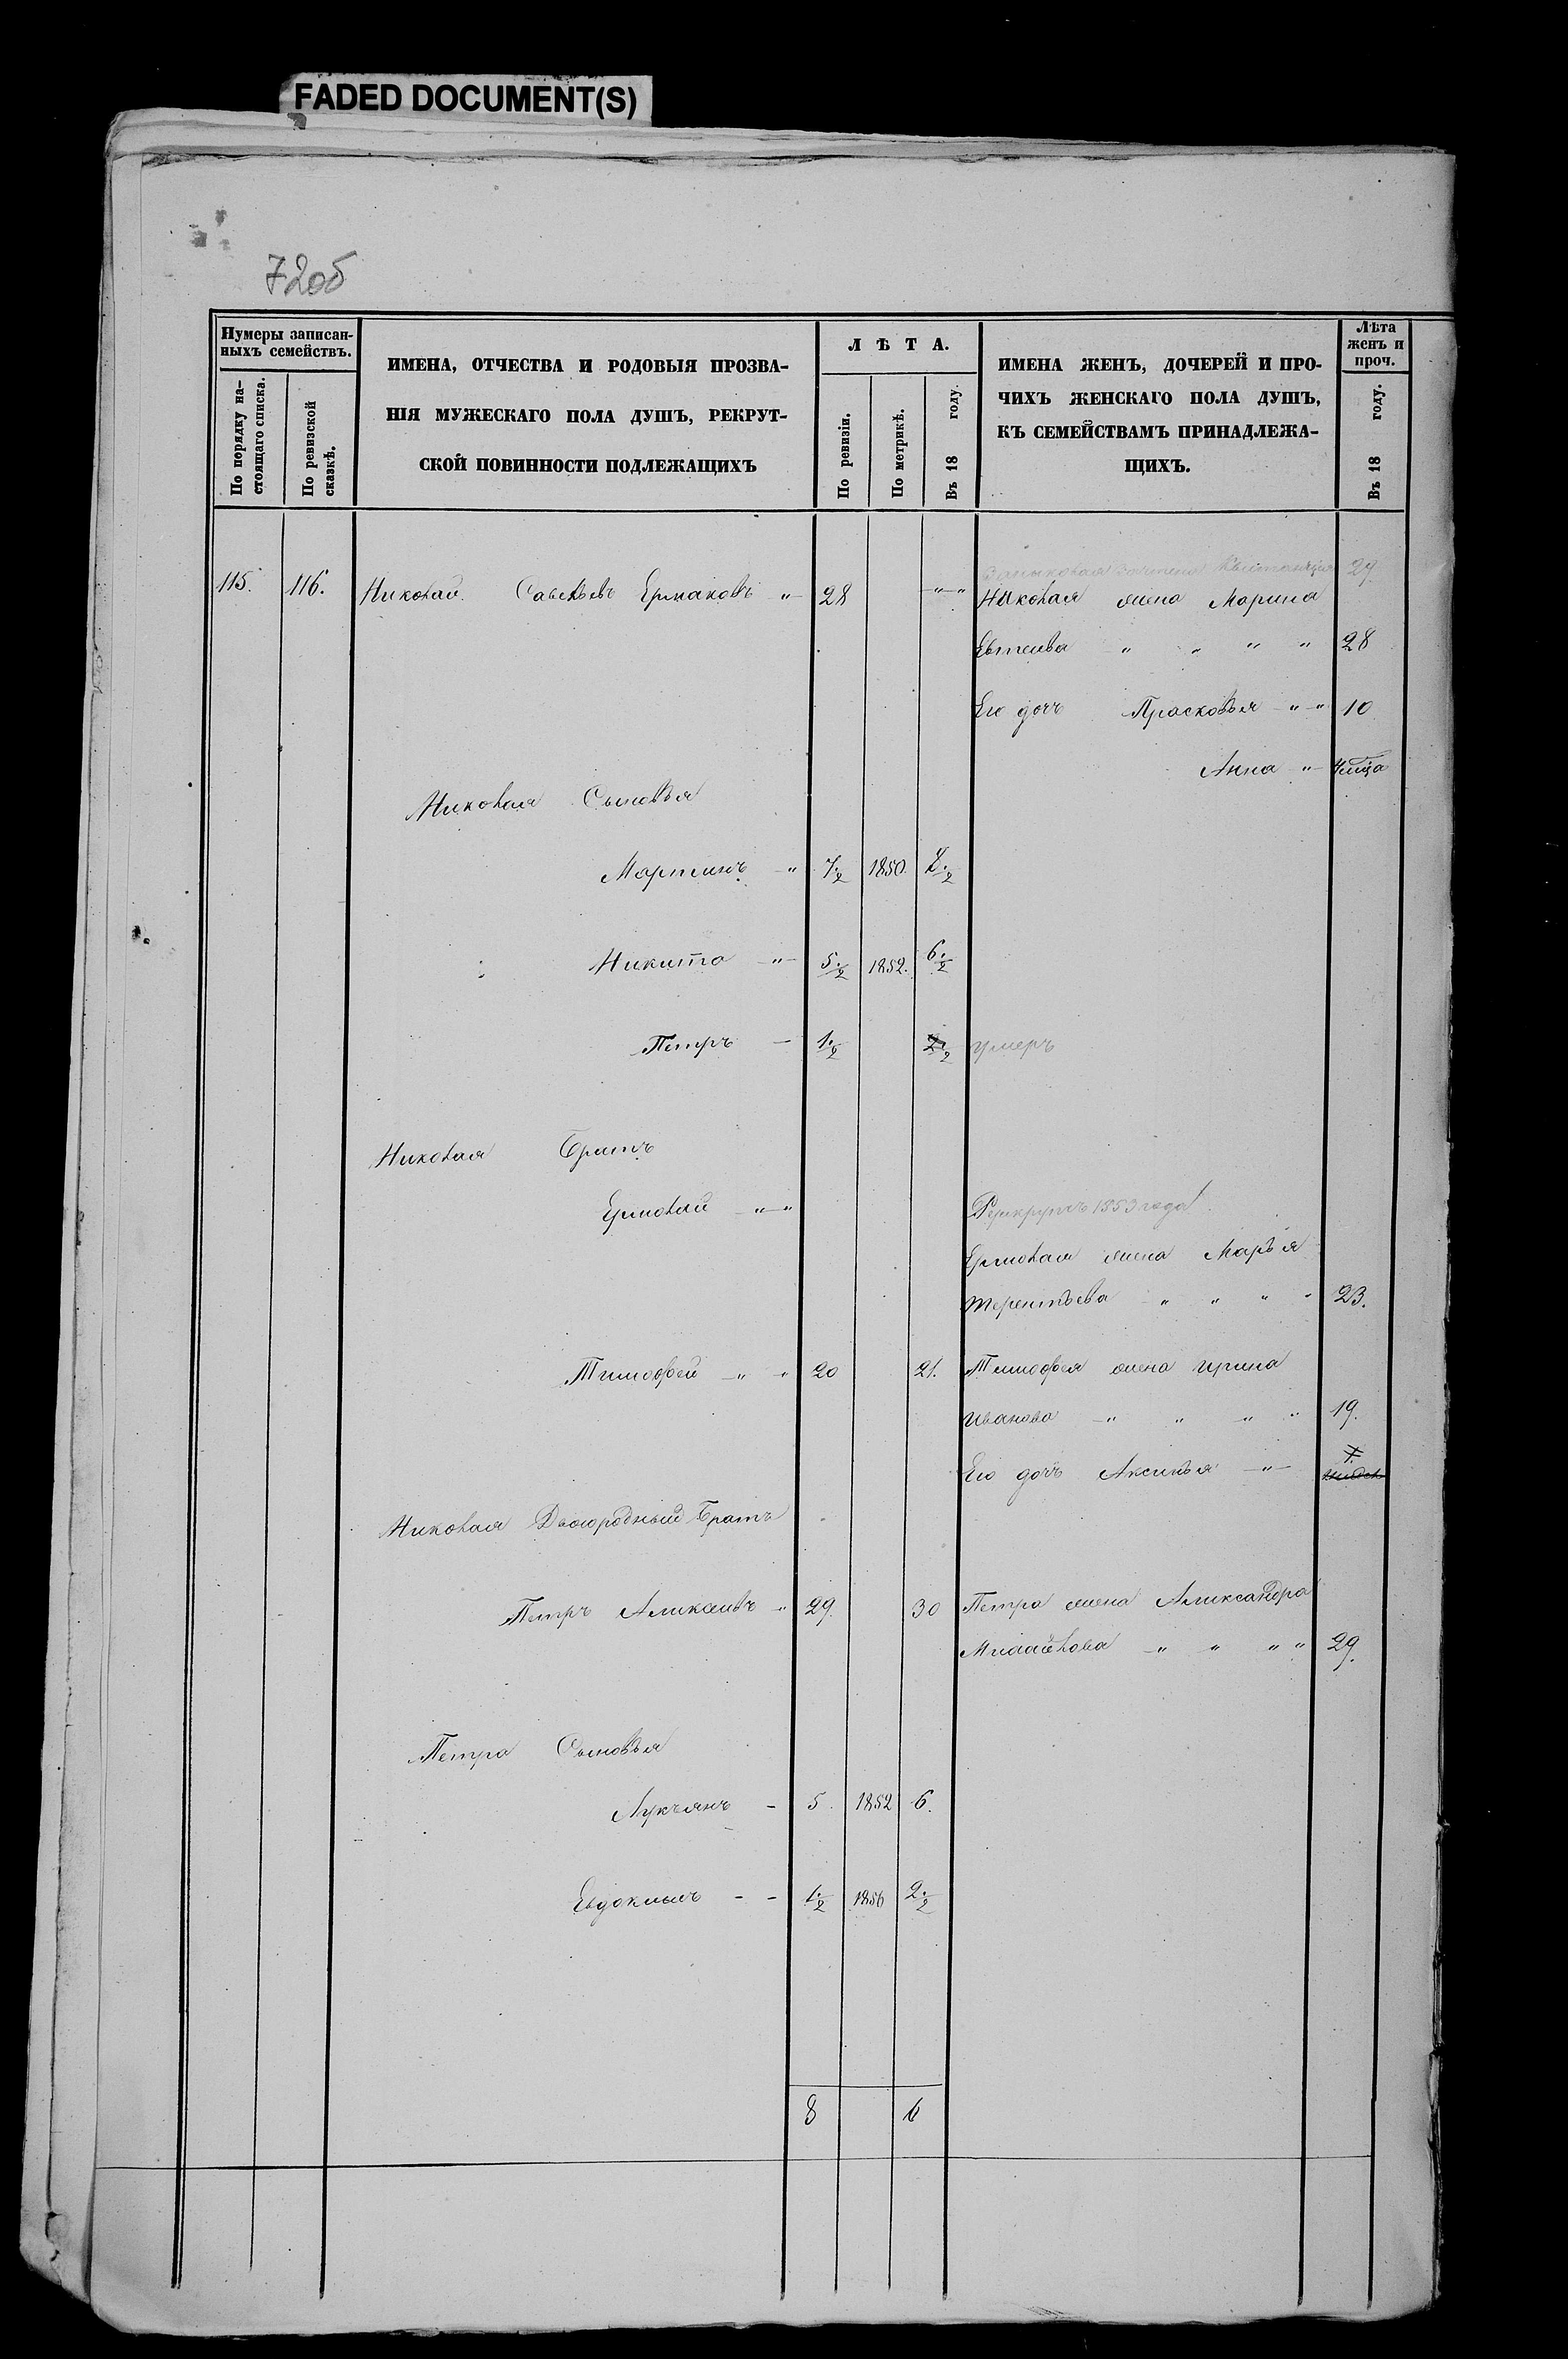 FADED DOCUMENT(S)
72об
Нумеры записан-
ныхъ семействъ.
По порядку на-
стоящаго списка.
По ревизской
сказкѣ.
ИМЕНА, ОТЧЕСТВА И РОДОВЫЯ ПРОЗВА-
НІЯ МУЖЕСКАГО ПОЛА ДУШЪ, РЕКРУТ-
СКОЙ ПОВИННОСТИ ПОДЛЕЖАЩИХЪ
ЛѢТА.
По ревизіи.
По метрикѣ.
Въ 18 году.
ИМЕНА ЖЕНЪ, ДОЧЕРЕЙ И ПРО-
ЧИХЪ ЖЕНСКАГО ПОЛА ДУШЪ,
КЪ СЕМЕЙСТВАМЪ ПРИНАДЛЕЖА-
ЩИХЪ.
Лѣта
женъ и
проч.
Въ 18 году.
зачтена квитанція 29
115. 116. Николай Савельевъ Ермаковъ " 28 " " Николая жена Марина
Евтеива " " " " 28
Его дочь Прасковья " " 10
Анна "
Николая Сыновья
Мартинъ " 7 ½ 1850.
Никита " 5 ½ 1852. 6 ½
Петръ 1 ½ 2 ½ умеръ
Николая Братъ
Ермолай " " Рекрутъ 1853 года
Ермолая жена Марья
Терентьева " " " " 23.
Тимофей " " 20 21. Тимофея жена Ирина
Иванова " " " " 19.
Его дочь Аксинья "
Николая Двоюродный Братъ
Петръ Аликсеивъ " 29. 30 Петра жена Аликсандра
Михайлова " " " " 29.
Петра Сыновья
Лукъянъ - 5. 1852 6.
Евдокимъ - - 1 ½ 1856 2 ½
8 6